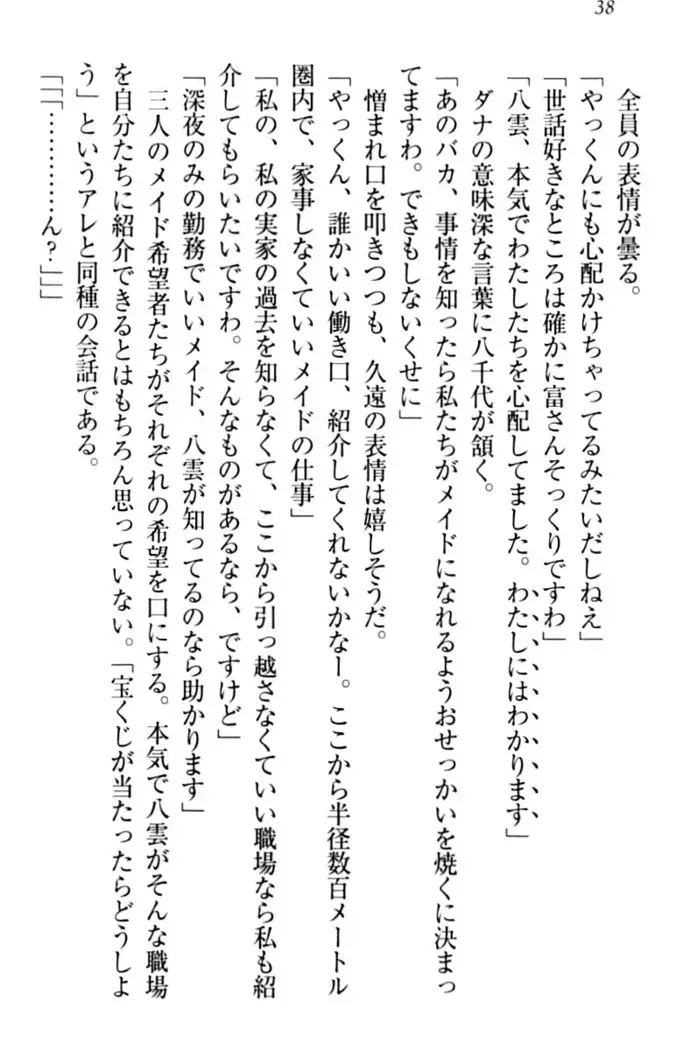 38
全員の表情が曇る。
「やっくんにも心配かけちゃってるみたいだしねえ」
「世話好きなところは確かに富さんそっくりですわ」
「八雲、本気でわたしたちを心配してました。わたしにはわかります」
ダナの意味深な言葉に八千代が頷く。
「あのバカ、事情を知ったら私たちがメイドになれるようおせっかいを焼くに決まっ
てますわ。できもしないくせに」
憎まれ口を叩きつつも、久遠の表情は嬉しそうだ。
「やっくん、誰かいい働き口、紹介してくれないかなー。ここから半径数百メートル
圏内で、家事しなくていいメイドの仕事」
「私の、私の実家の過去を知らなくて、ここから引っ越さなくていい職場なら私も紹
介してもらいたいですわ。そんなものがあるなら、ですけど」
「深夜のみの勤務でいいメイド、八雲が知ってるのなら助かります」
三人のメイド希望者たちがそれぞれの希望を口にする。本気で八雲がそんな職場
を自分たちに紹介できるとはもちろん思っていない。「宝くじが当たったらどうしよ
う」というアレと同種の会話である。
「「「…………ん?」」」